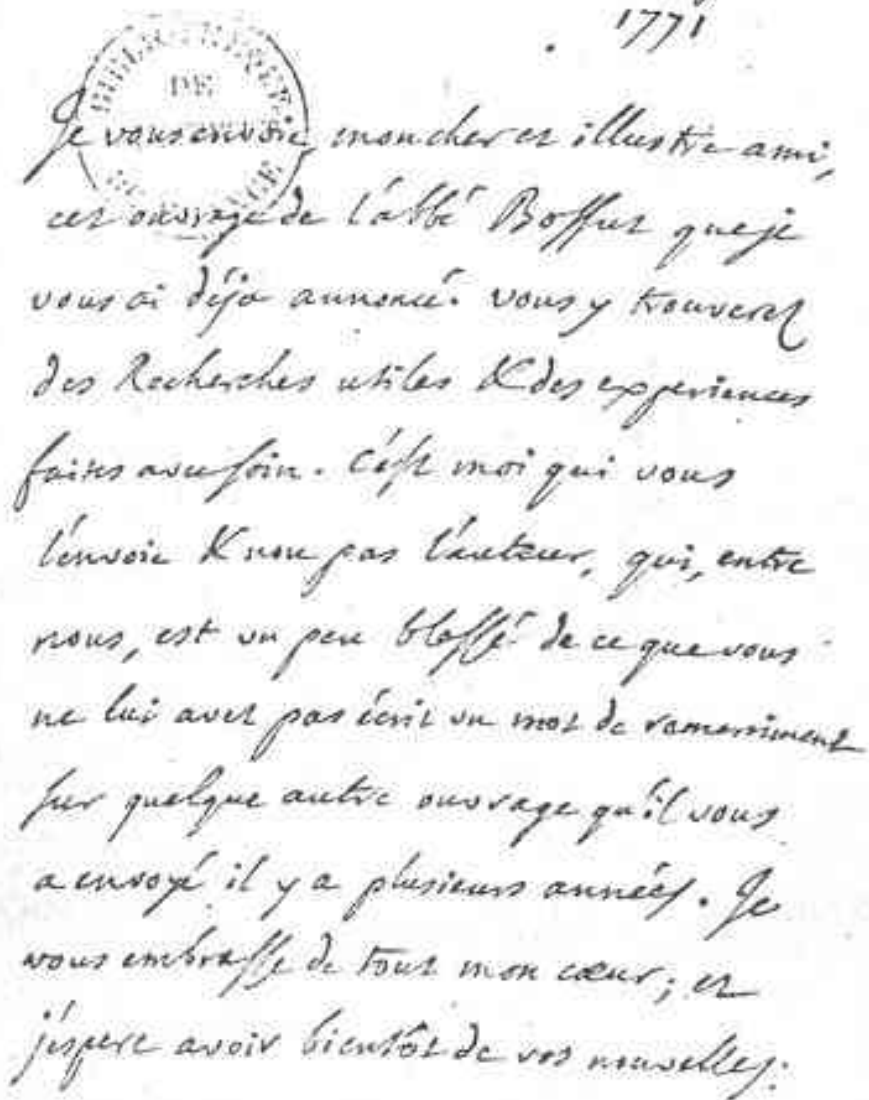 1771
BIBLIOTHEQUE
DE
Je vous envoie, mon cher et illustre ami,
cet ouvrage de l'abbé Bossut que je
vous ai déja annoncé. vous y trouverez
des Recherches utiles & des experiences
faites avec soin. C'est moi qui vous
l'envoie & non pas l'auteur, qui, entre
nous, est un peu blessé de ce que vous
ne lui avez pas écrit un mot de remerciment
sur quelque autre ouvrage qu'il vous
a envoyé il y a plusieurs années. Je
vous embrasse de tout mon cœur; et
j'espere avoir bientôt de vos nouvelles.